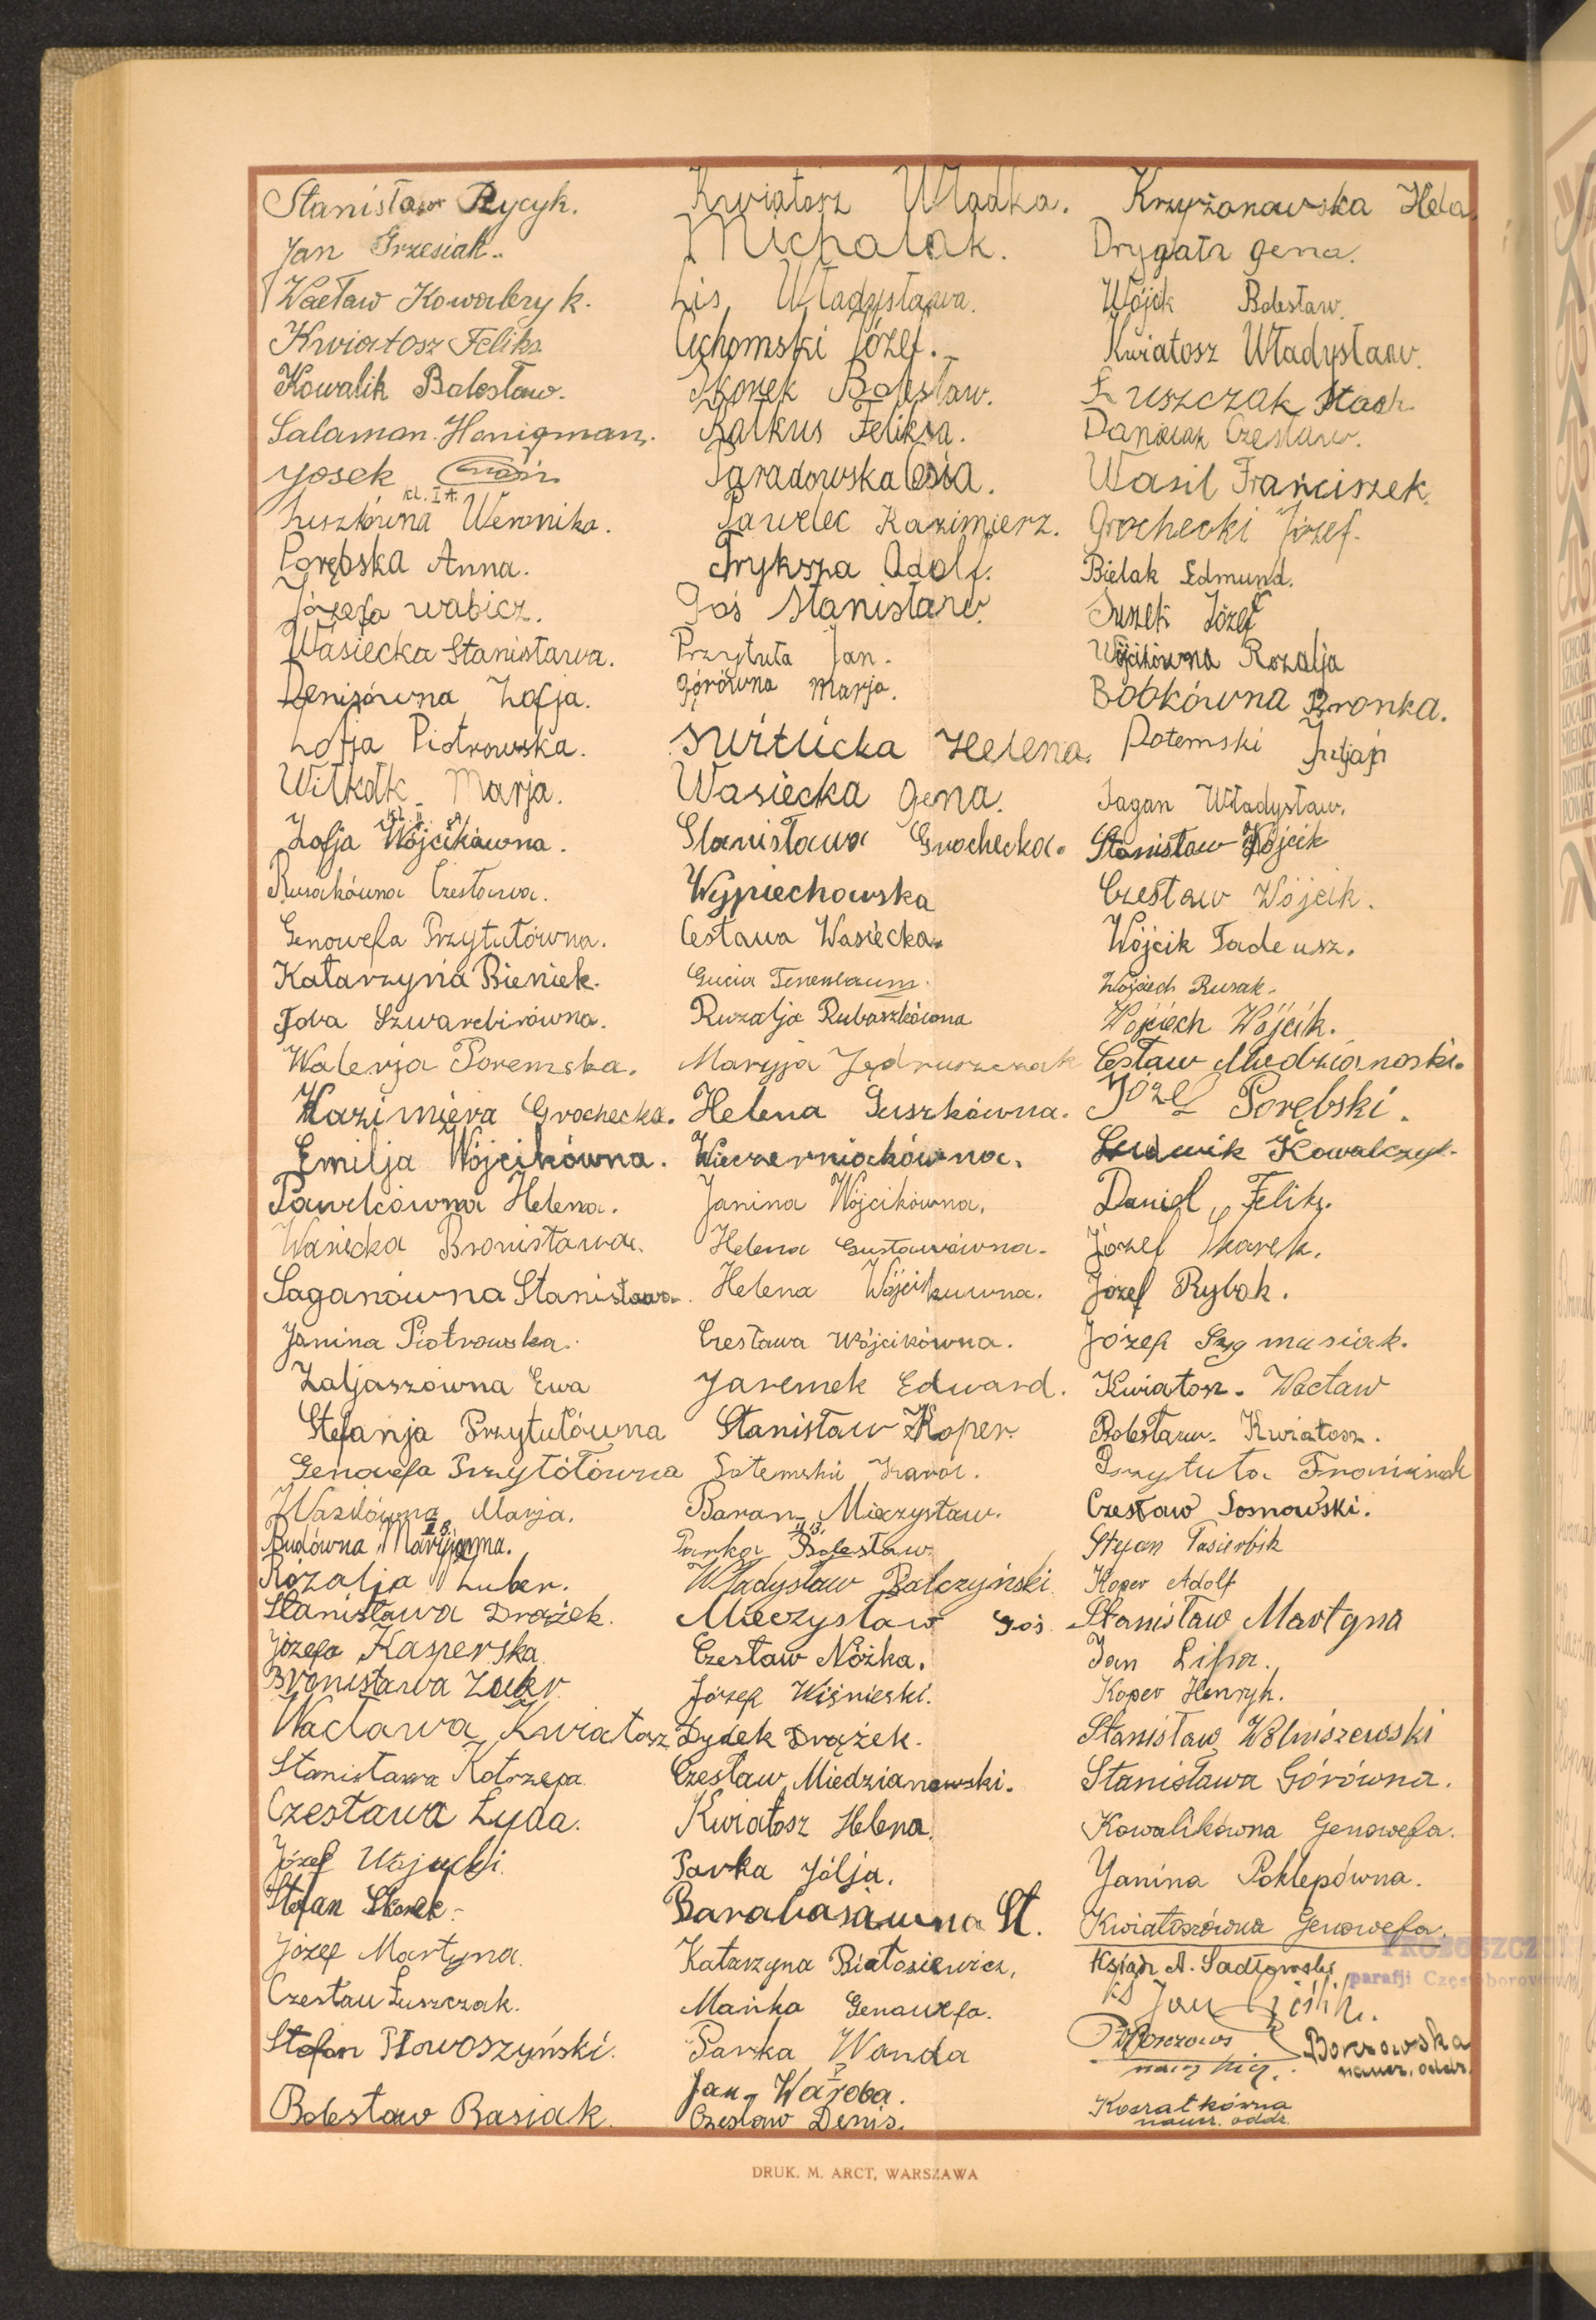 Stanisław Rycyk.
Jan Grzesiak.
Wacław Kowalczyk.
Kwiatosz Feliks
Kowalik Bolesław.
Salamon Honigman.
Josek
kl. I A.
Luszkówna Weronika.
Porębska Anna.
Józefa wabicz.
Wasiecka Stanisława.
Denisówna Zofja.
Zofja Piotrowska.
Witkdk Marja.
kl. II
Zofja Wójcikówna.
Rusakówna Czesława.
Genowefa Przytułówna.
Katarzyna Bieniek.
Szwarcbirówna.
Walerja Poremska.
Kazimiera Grochecka.
Emilja Wójcikówna.
Pawelcówna Helena.
Wasiecka Bronisława.
Saganówna Stanisława.
Janina Piotrowska.
Zaljaszówna Ewa
Stefanja Przytułówna
Genowefa Przytótówna
Wasilówna Marja.
II B.
Budówna Maryjanna.
Rozalja Luber.
Stanisława Drążek.
Józefa Kasperska
Bronisława
Wacława Kwiatosz
Stanisława Kotrzepa.
Czesława Łyda.
Józef
Stefan Skorek.
Józef Martyna.
Czesłau Łuszczak.
Stefan Nowoszyński.
Bolesław Basiak.
Kwiatosz Władka.
Michalak.
Lis Władysława.
Cichomski Józef.
Skorek Bolesław.
Ratkus Feliksa.
Paradowska Cesia.
Pawelec Kazimierz.
Tryksza Adolf.
Goś Stanisław.
Przytuła Jan.
Górówna Marja.
Świtlicka Helena.
Wasiecka Gena.
Stanisława Grochecka.
Wypiechowska
Cesława Wasiecka.
Gucia Tenenbaum.
Ruzalja Rubaszkówna
Maryja Jędruszczak
Helena Guszkówna.
Wieczerniakówna.
Janina Wójcikówna.
Helena Gustawówna.
Helena Wójcikuwna.
Czesława Wójcikówna.
Jaremek Edward.
Stanisław Koper.
Potemski Karol.
Baran Mieczysław.
II B.
Parka Bolesław
Władysław Balczyński
Mieczysław Goś.
Czesław Nóżka.
Józef Wiśnieski.
Dydek Drążek.
Czesław Miedzianowski.
Kwiatosz Helena.
Parka Jólja.
Barabasiówna St.
Katarzyna Białosiewicz,
Mańka Genowefa.
Parka Wanda
Jan Waroba.
Czesław Denis.
Krzyżanowska Hela.
Drygała Gena.
Wójcik Bolesław.
Kwiatosz Władysław.
Łuszczak Stach.
Danielak Czesław.
Wasil Franciszek.
Grochecki Józef.
Bielak Edmund.
Suszek Józef
Wójcikówna Rozalja
Bobkówna Bronka.
Potemski Juljan
Sagan Władysław.
Stanisław Wójcik
Czesław Wójcik.
Wójcik Tadeusz.
Wojciech Rusak.
Wojciech Wójcik.
Cesław Miedzianoski.
Józef Porębski.
Ludwik Kowalczyk.
Daniel Feliks.
Józef Skorek.
Józef Rybak.
Józef Szymusiak.
Kwiatosz Wacław
Bolesław Kwiatosz.
Przytuła Franciszek
Czesław Sosnowski.
Stefan Pasierbik
Koper Adolf
Stanisław Martyna
Jan Lipa.
Koper Henryk.
Stanisław Woliniszewski
Stanisława Górówna.
Kowalikówna Genowefa.
Janina Poklepówna.
Kwiatoszówna Genowefa.
PROBOSZCZ
parafji Częstoborowic
Ksiądz A. Sadłowski
Ks Jan
Borzowska
naucz. oddz.
Koszałkówna
naucz. oddz.
DRUK. M. ARCT, WARSZAWA